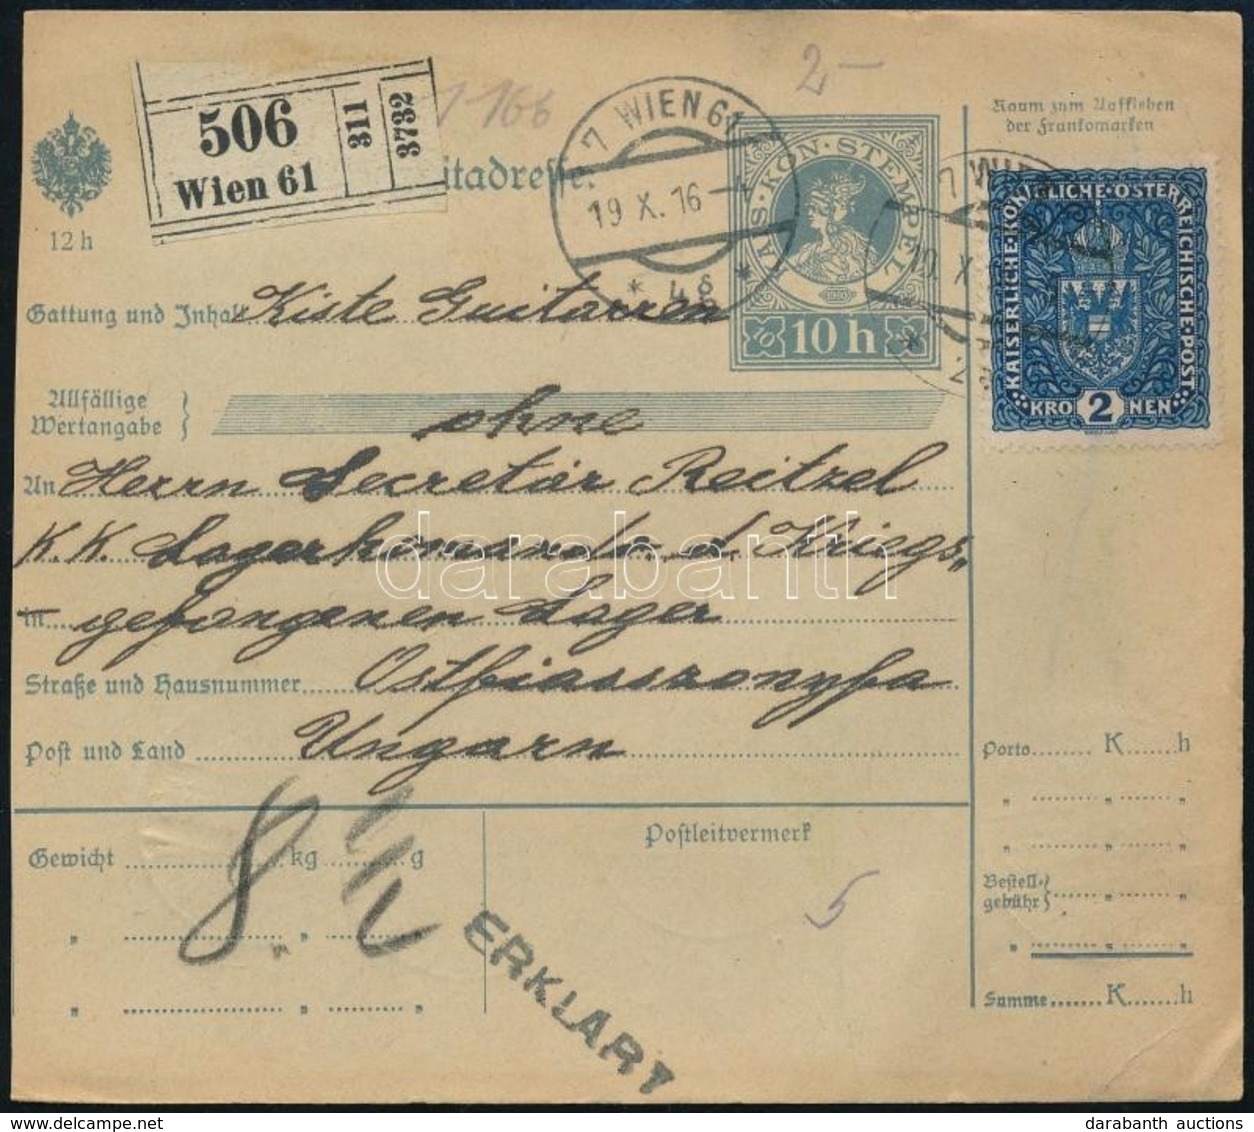 506
Wien 61
311
3732
2-
7 WIEN 61
19 X. 16
KAIS·KÖN·STEMPEL
10 h
Raum zum Aufkleben
der Frankomarken
KAISERLICHE·KÖNIGLICHE·ÖSTERREICHISCHE·POST
KRO 2 NEN
12 h
Gattung und Inhalt Kiste Guitarren
Allfällige
Wertangabe } ohne
An Herrn Secretär Reitzel
K. K. Lagerkomando d. Kriegs„
in gefangenen Lager
Straße und Hausnummer Ostfiasszonyfa
Post und Land Ungarn
darabanth
Porto K h
Gewicht kg g
8. 1/2
Postleitvermerk
5
Bestell-
gebühr
ERKLÄRT
Summe K h
darabanth auctions
www.darabanth.com